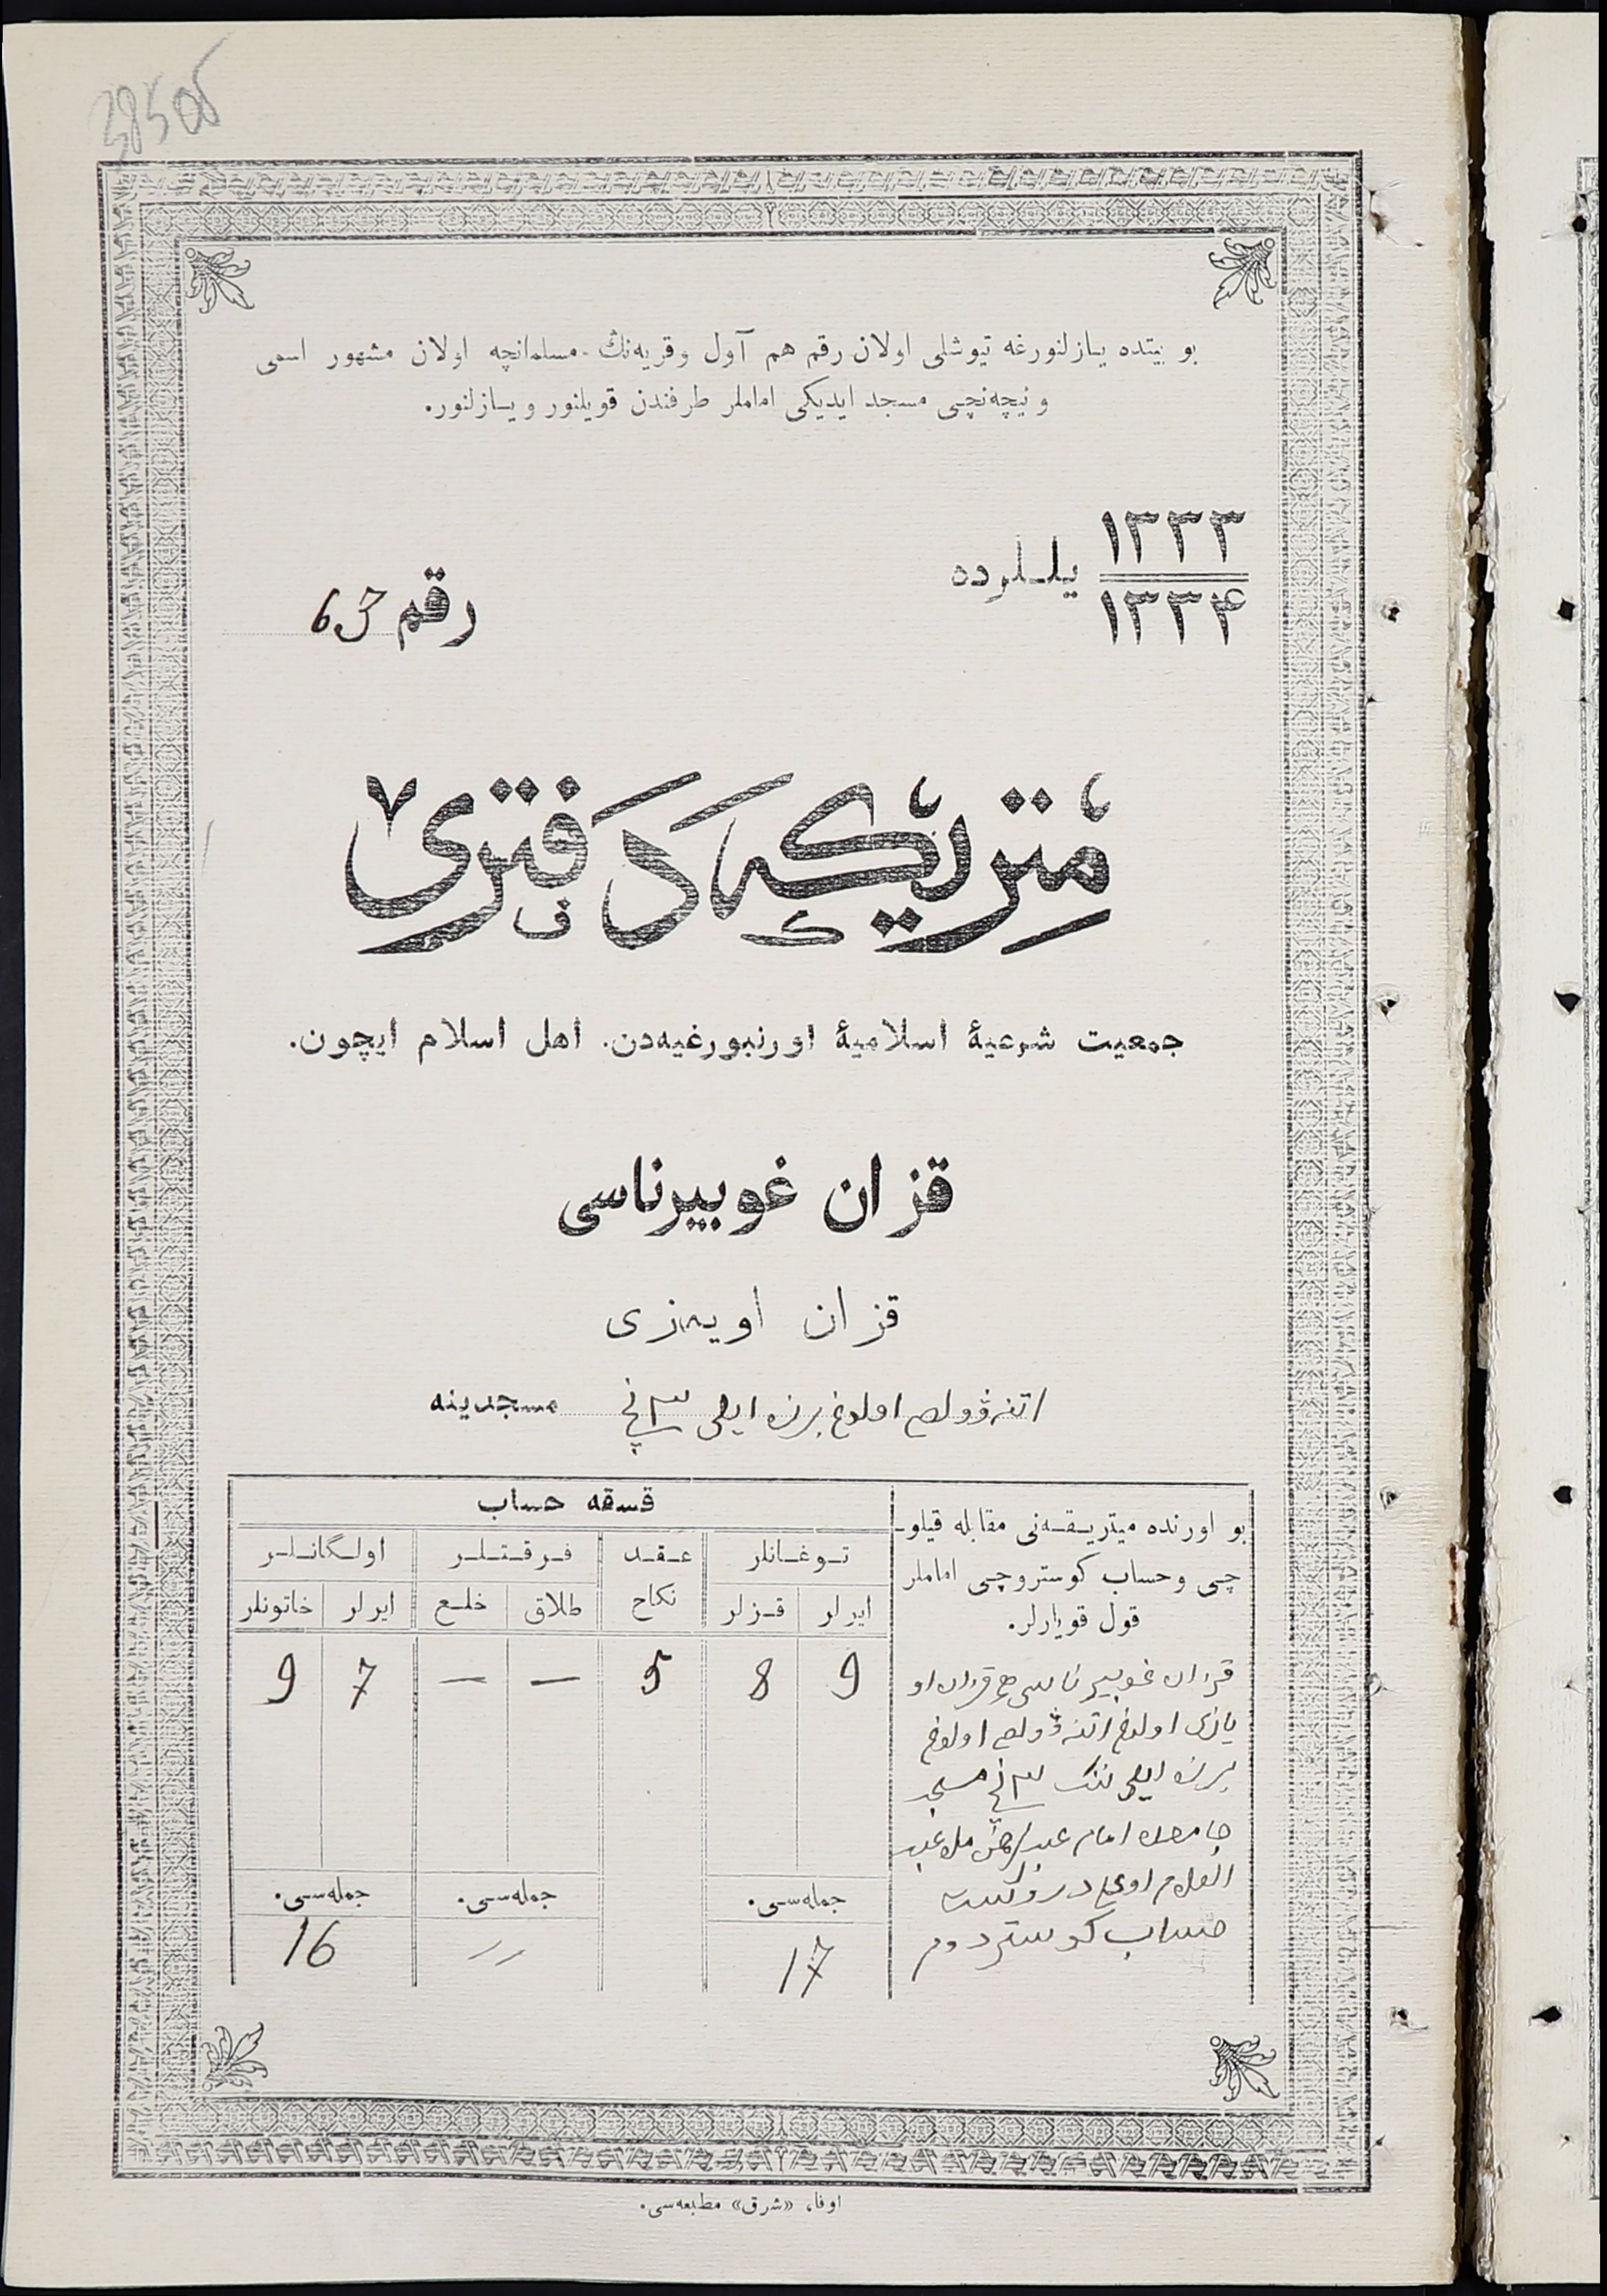 385 об
بو بیتده یازلنورغه تیوشلی اولان رقم هم آول وقریه‌نڭ مسلمانچه اولان مشهور اسمی
و نیچه‌نچی مسجد ایدیکی اماملر طرفندن قویلنور و یازلنور.
۱۳۳۳
۱۳۳۴
یللرده
رقم 63
مِتریکه دَفتری
جمعیت شرعیۀ اسلامیۀ اورنبورغیه‌دن. اهل اسلام ایچون.
قزان غوبیرناسی
قزان اویه‌زی
اتنه ۋولصی اولوغ برزه ایلی ۳نچی مسجدینه
قسقه حساب
توغانلر عقد فرقتلر اولگانلر
ایرلر قزلر نکاح طلاق خلع ایرلر خاتونلر
9 8 5 — — 7 9
جمله‌سی. جمله‌سی. جمله‌سی.
17 〃 16
بو اورنده میتریقه‌نی مقابله قیلو-
چی وحساب کوستروچی اماملر
قول قویارلر.
قزان غوبیرناسی قزان او
یازی اولوغ اتنه ۋولصی اولوغ
برزه ایلی ننک ۳نچی مسجد
جامعده امام ملا عبد
العلام اوغلی
حساب کوستردوم
اوفا، «شرق» مطبعه‌سی.